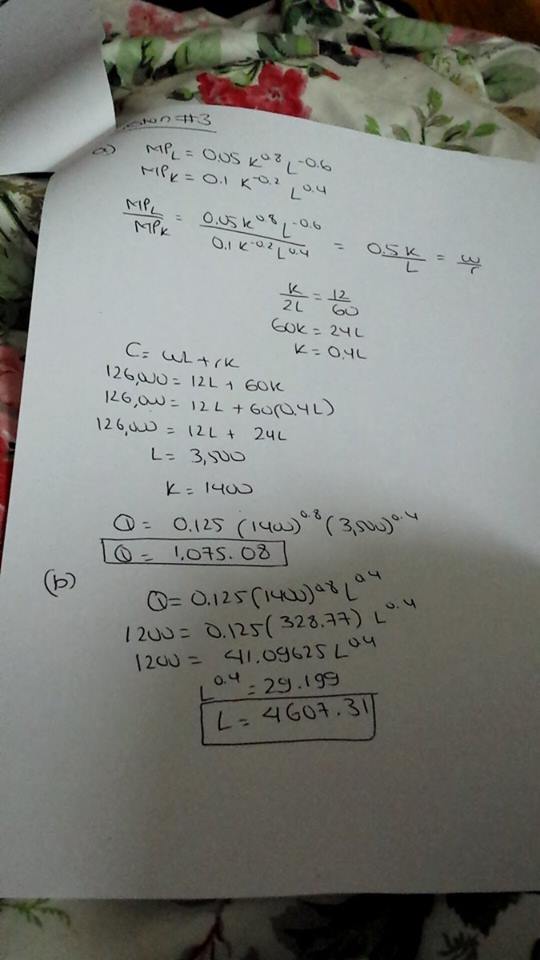 #3
a) MPL = 0.05 K^0.8 L^-0.6
MPK = 0.1 K^-0.2 L^0.4
MPL/MPK = 0.05 K^0.8 L^-0.6 / 0.1 K^-0.2 L^0.4 = 0.5K/L = w/r
K/2L = 12/60
60K = 24L
K = 0.4L
C = wL + rK
126,000 = 12L + 60K
126,000 = 12L + 60(0.4L)
126,000 = 12L + 24L
L = 3,500
K = 1400
Q = 0.125 (1400)^0.8 (3,500)^0.4
Q = 1,075.08
(b)
Q = 0.125(1400)^0.8 L^0.4
1200 = 0.125(328.77) L^0.4
1200 = 41.09625 L^0.4
L^0.4 = 29.199
L = 4607.31